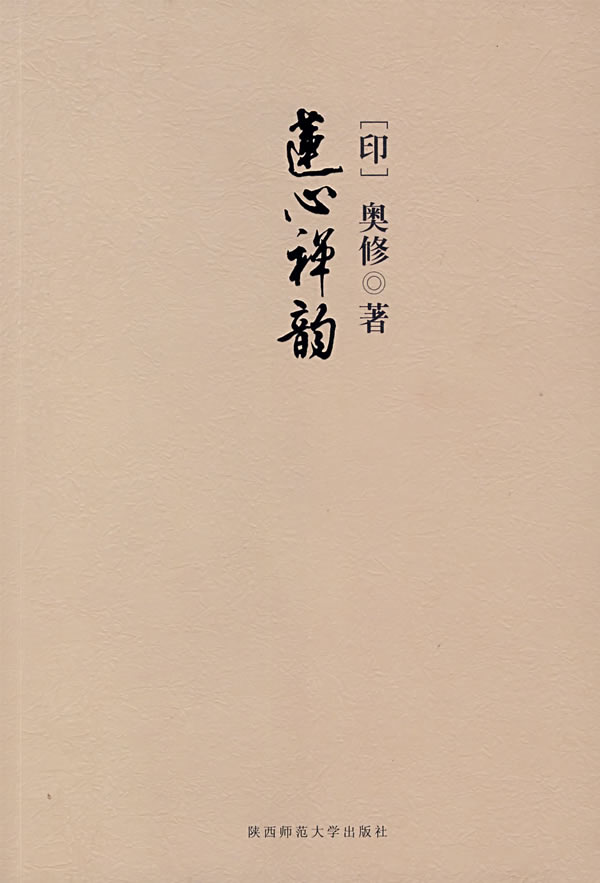 [印] 奥修◎著
莲心禅韵
陕西师范大学出版社